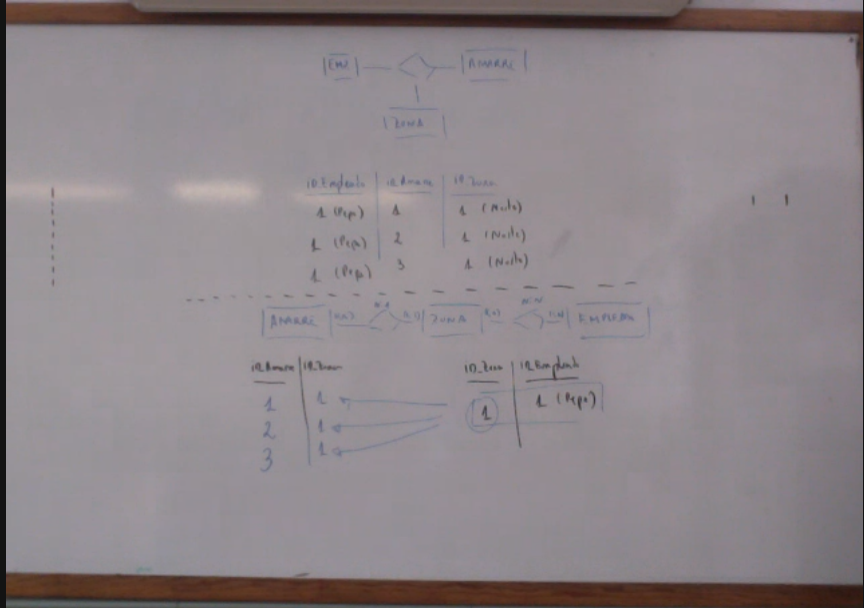 EMP AMARRE
ZONA
ID_Empleado ID_Amarre ID_Zona
1 (Pepe) 1 1 (Norte)
1 (Pepe) 2 1 (Norte)
1 (Pepe) 3 1 (Norte)
N:1 N:N
AMARRE ZONA EMPLEADO
ID_Amarre ID_Zona ID_Zona ID_Empleado
1 1 1 1 (Pepe)
2 1
3 1